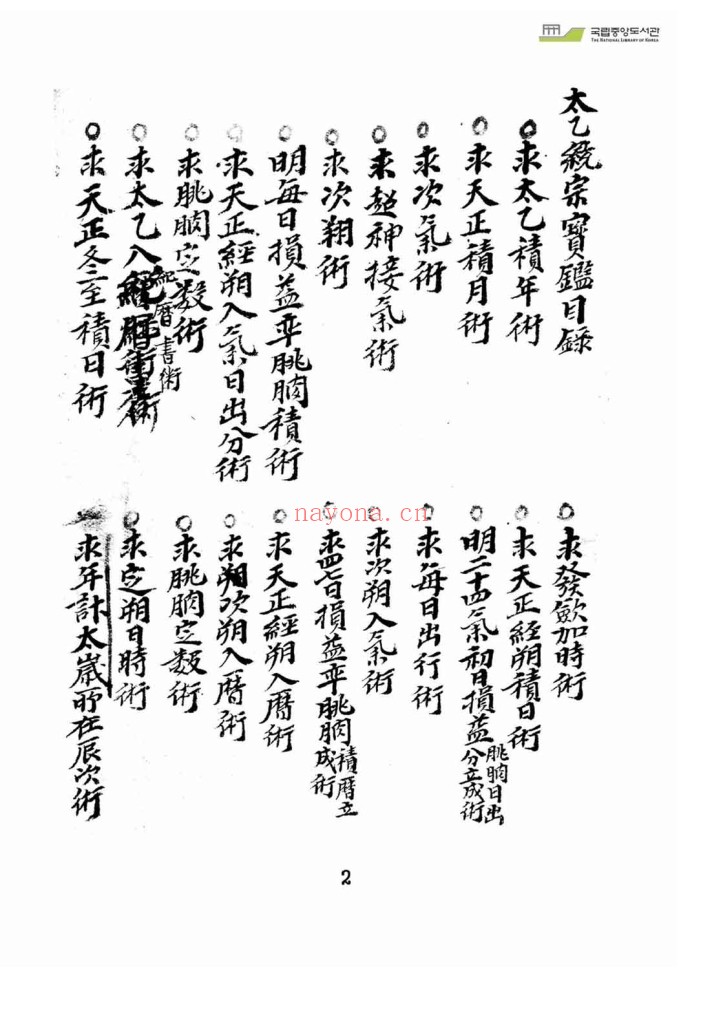 국립중앙도서관
THE NATIONAL LIBRARY OF KOREA
太乙統宗寶鑑目錄
求太乙積年術
求天正積月術
求次氣術
求超神接氣術
求次朔術
明每日損益率朓朒積術
求天正經朔入氣日出分術
求朓朒定数術
求太乙八
紀曆書術
求天正冬至積日術
求發歛加時術
求天正經朔積日術
明二十四氣初日損益朓朒日出分立成術
求每日出行術
求次朔入氣術
求四七日損益率朓朒積曆立成術
求天正經朔入曆術
求朔次朔入曆術
求朓朒定数術
求定朔日時術
求年計太歲所在辰次術
nayona.cn
2